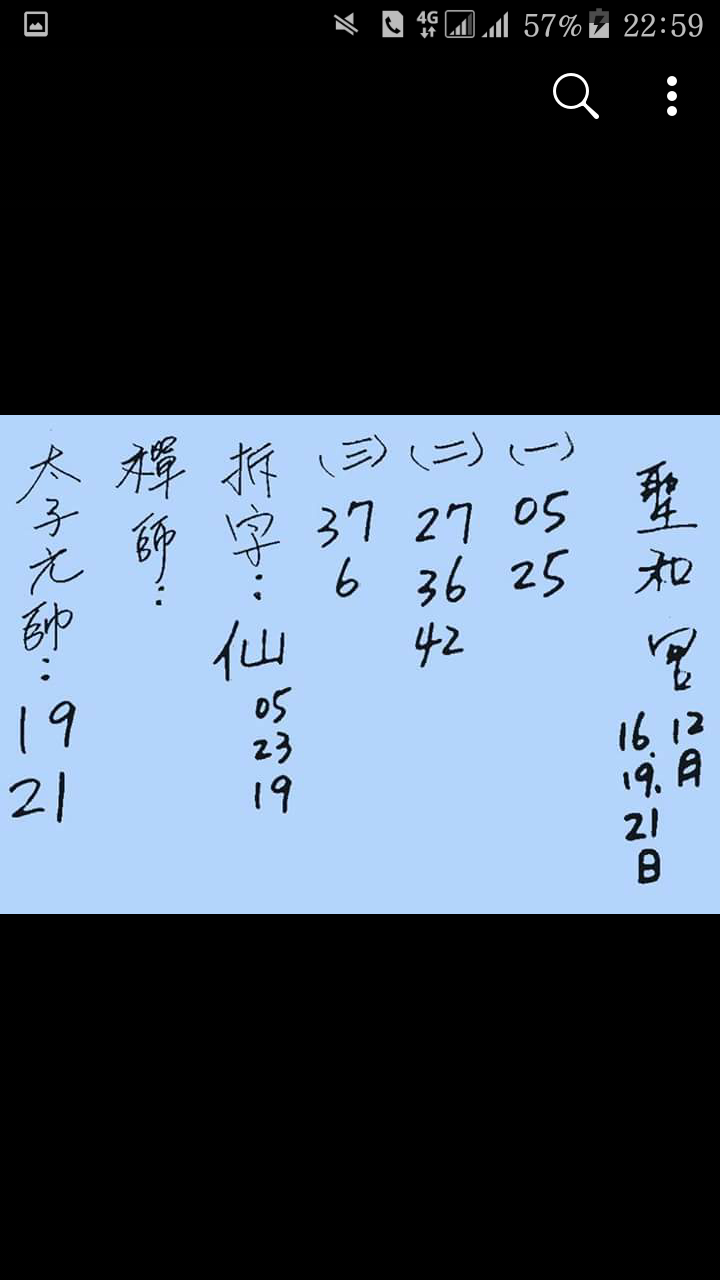 4G 57% 22:59
聖和宮
12月
16.19.21日
(一) 05 25
(二) 27 36 42
(三) 37 6
拆字：仙 05 23 19
禪師：
太子元帥：19 21